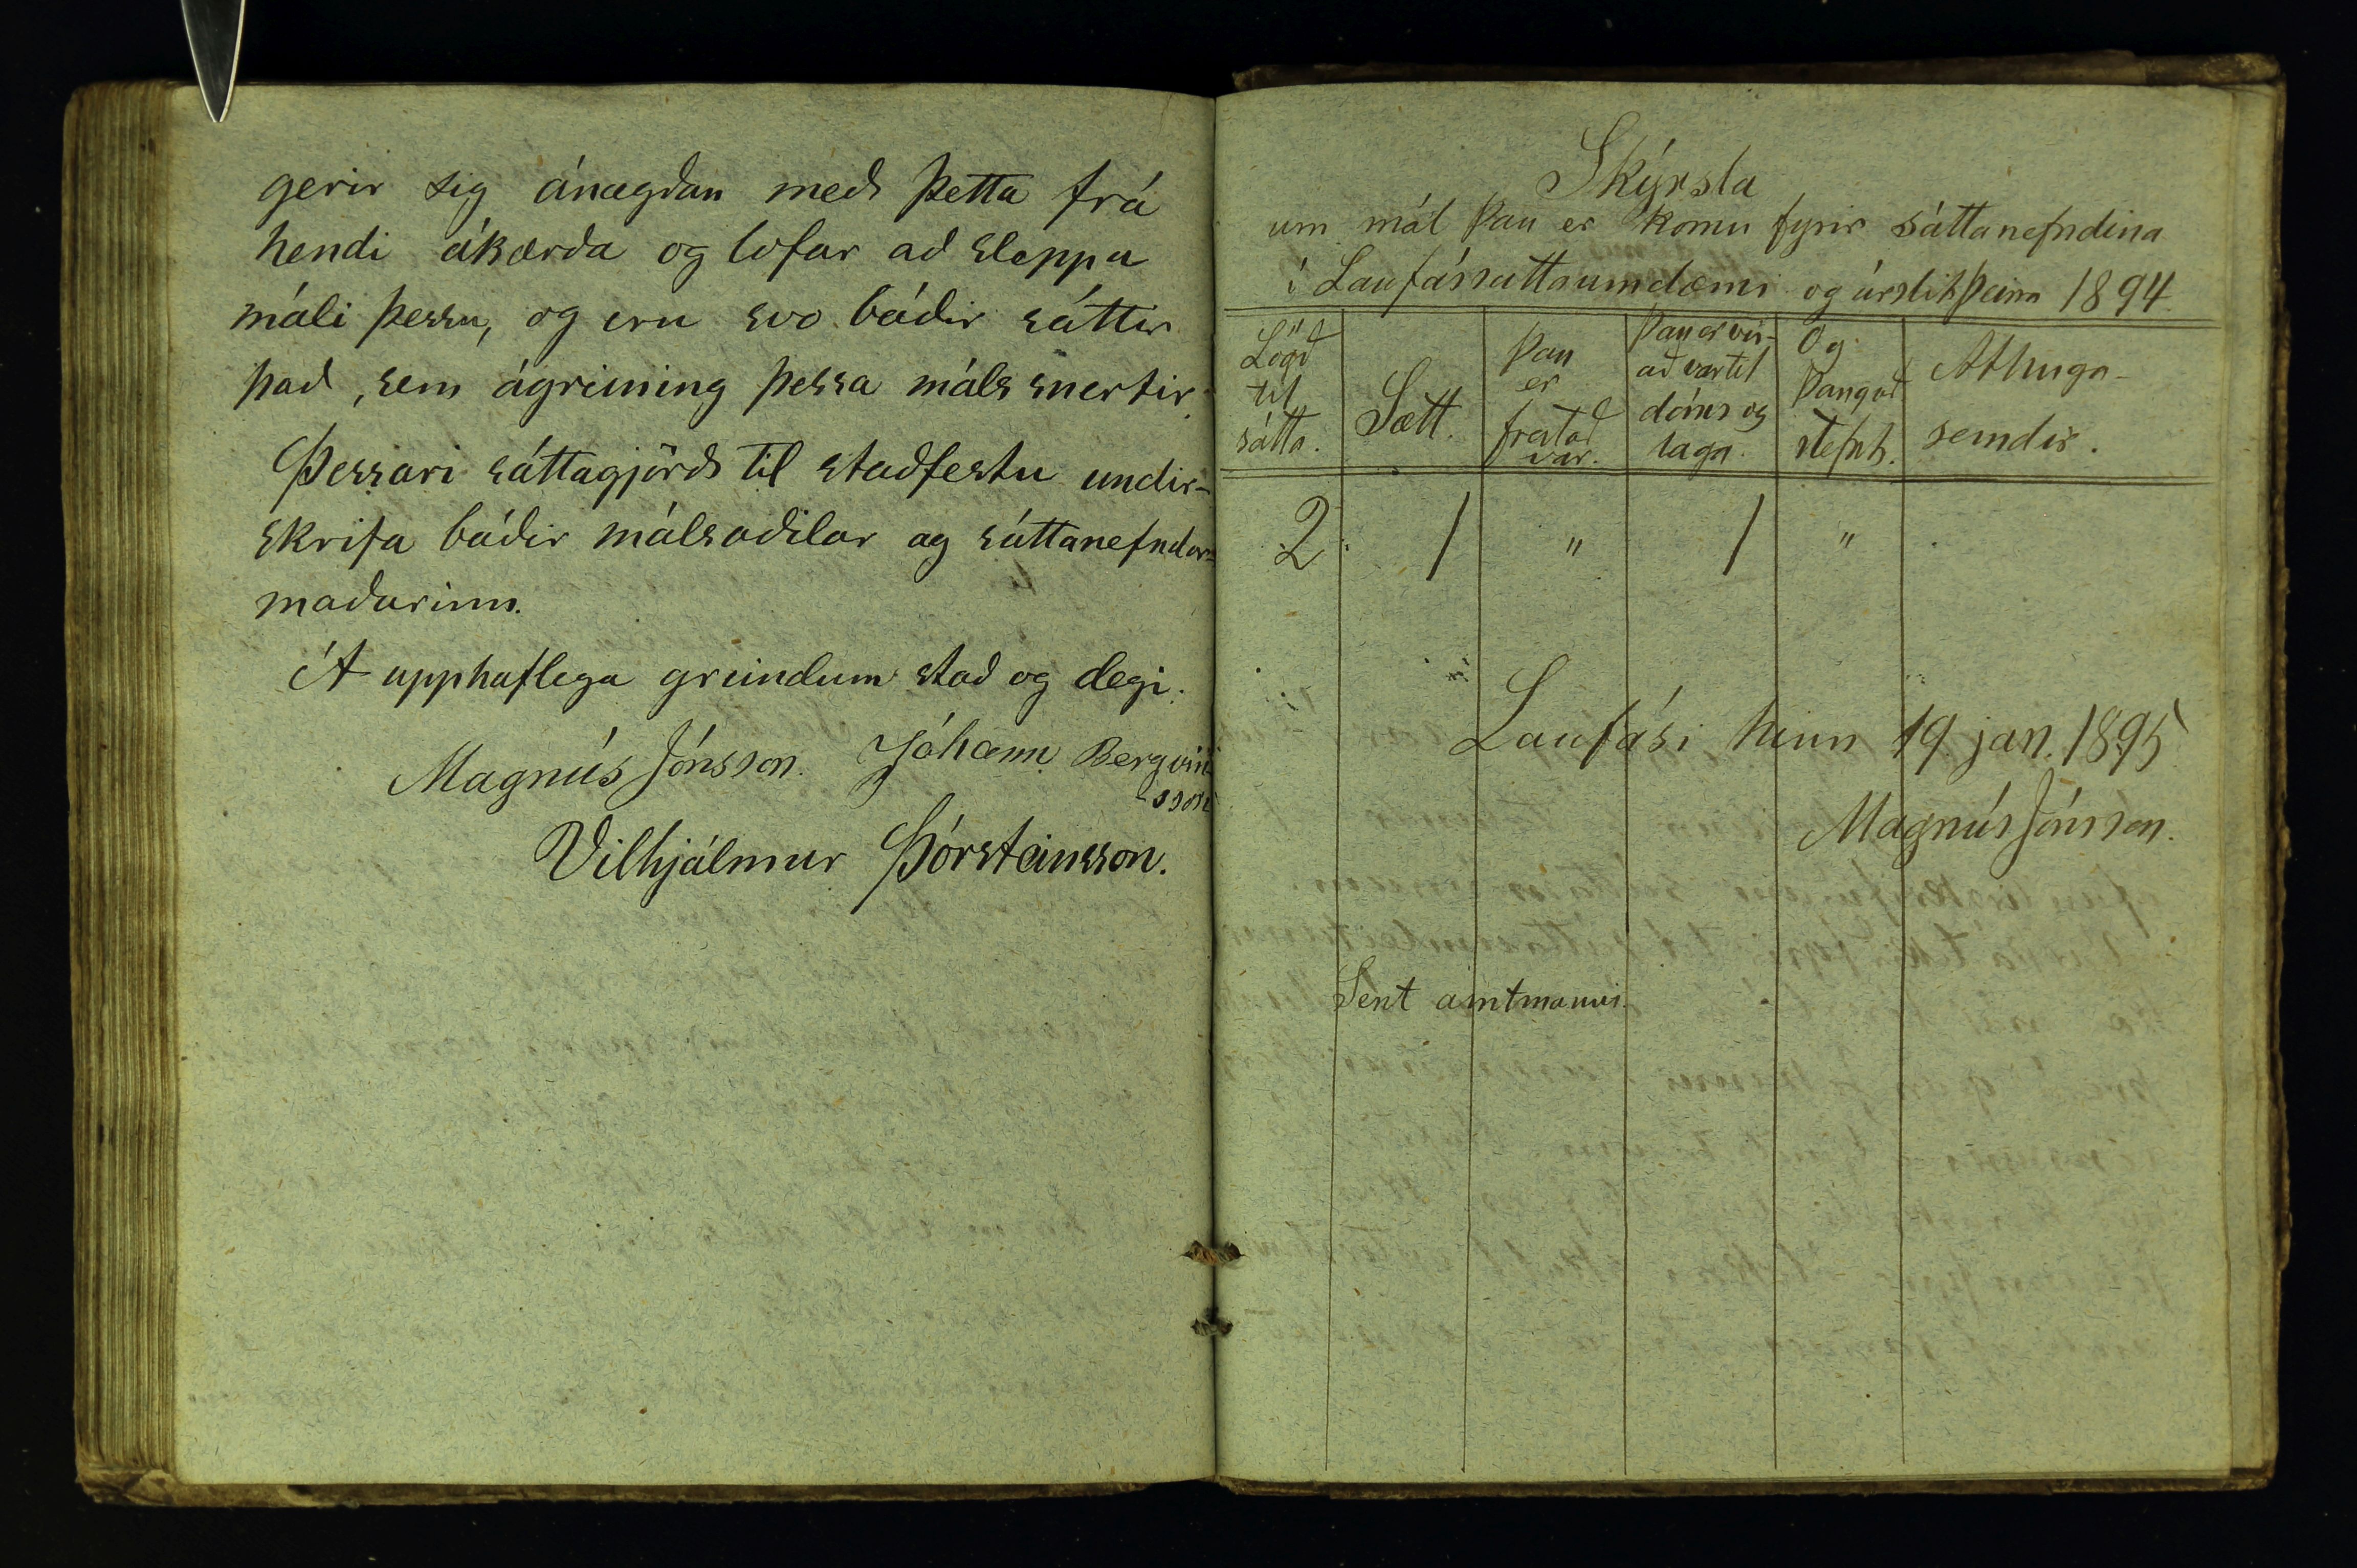 gerir sig ánægðan með þetta frá
hendi ákærða og lofar að sleppa
máli þessu, og eru svo báðir sáttir
það, sem ágreining þessa máls snertir.
Þessari sáttagjörð til staðfestu undir-
skrifa báðir málsaðilar og sáttanefndar-
maðurinn.
Á upphaflega greindum stað og degi.
Magnús Jónsson. Jóhann Bergvin
-sson
Vilhjálmur Þórsteinsson.
Skýrsla
um mál þau er komu fyrir sáttanefndina
í Laufássáttaumdæmi og úrslit þeirra 1894.
Lögð til sátta.
Sætt.
Þau er frestað var.
Þau er vís-
að var til
dóms og
laga.
Og þangað stefnt.
Athuga-
semdir.
2 1 " 1 "
Laufási hinn 19 jan. 1895
Magnús Jónsson.
Sent amtmanni.